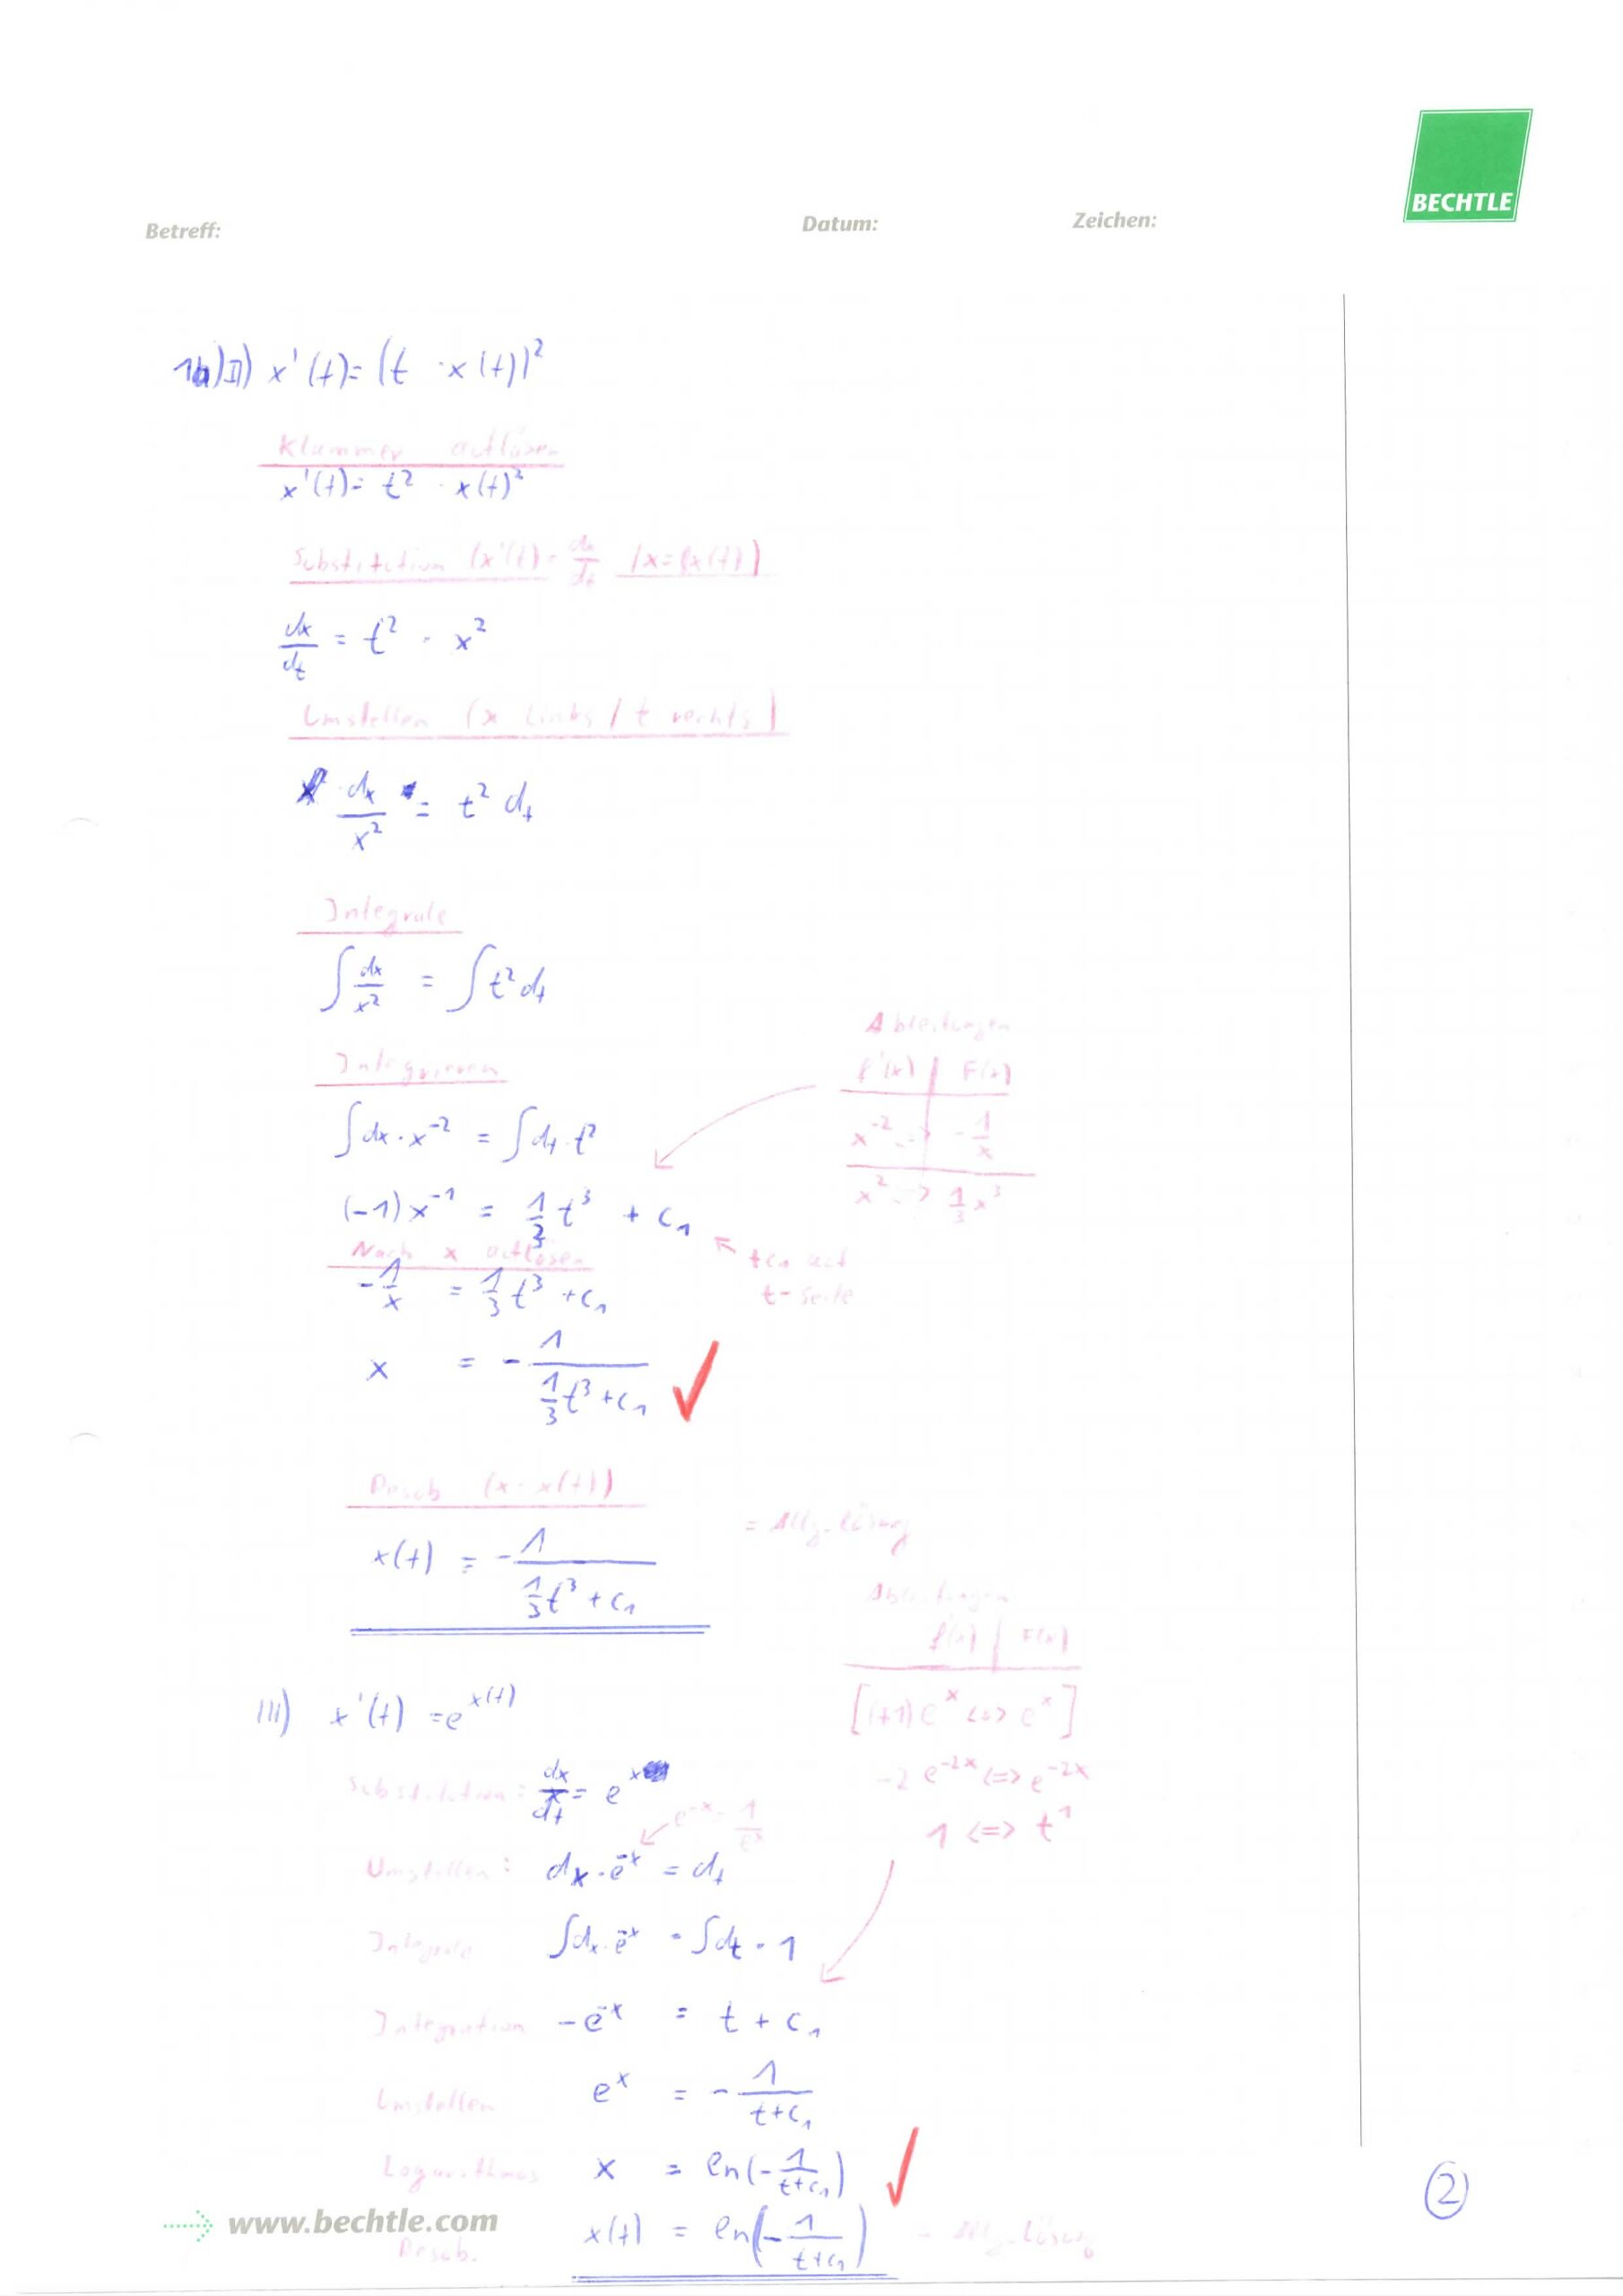 BECHTLE
Betreff: Datum: Zeichen:
1b) II) x'(t) = (t · x(t))²
Klammer auflösen
x'(t) = t² · x(t)²
Substitution (x'(t) = dx/dt / x = (x(t))
dx/dt = t² · x²
Umstellen (x links / t rechts)
· dx/x² = t² dt
Integrale
∫ dx/x² = ∫ t² dt
Ableitungen
f'(x) | F(x)
x⁻² -> -1/x
x² -> 1/3 x³
Integrieren
∫ dx · x⁻² = ∫ dt · t²
(-1) x⁻¹ = 1/3 t³ + c₁
+c₁ auf
t-Seite
Nach x auflösen
-1/x = 1/3 t³ + c₁
x = - 1/(1/3 t³ + c₁) ✓
Resub (x = x(t))
x(t) = - 1/(1/3 t³ + c₁) = Allg. Lösung
Ableitungen
f'(x) | F(x)
[(+1) eˣ <=> eˣ]
-2 e⁻²ˣ <=> e⁻²ˣ
1 <=> t¹
III) x'(t) = e^x(t)
Substitution: dx/dt = eˣ
e⁻ˣ = 1/eˣ
Umstellen: dx · e⁻ˣ = dt
Integrale ∫ dx · e⁻ˣ = ∫ dt · 1
Integration -e⁻ˣ = t + c₁
Umstellen eˣ = - 1/(t+c₁)
Logarithmus x = ln(- 1/(t+c₁)) ✓
Resub. x(t) = ln(- 1/(t+c₁)) = Allg. Lösung
www.bechtle.com
2